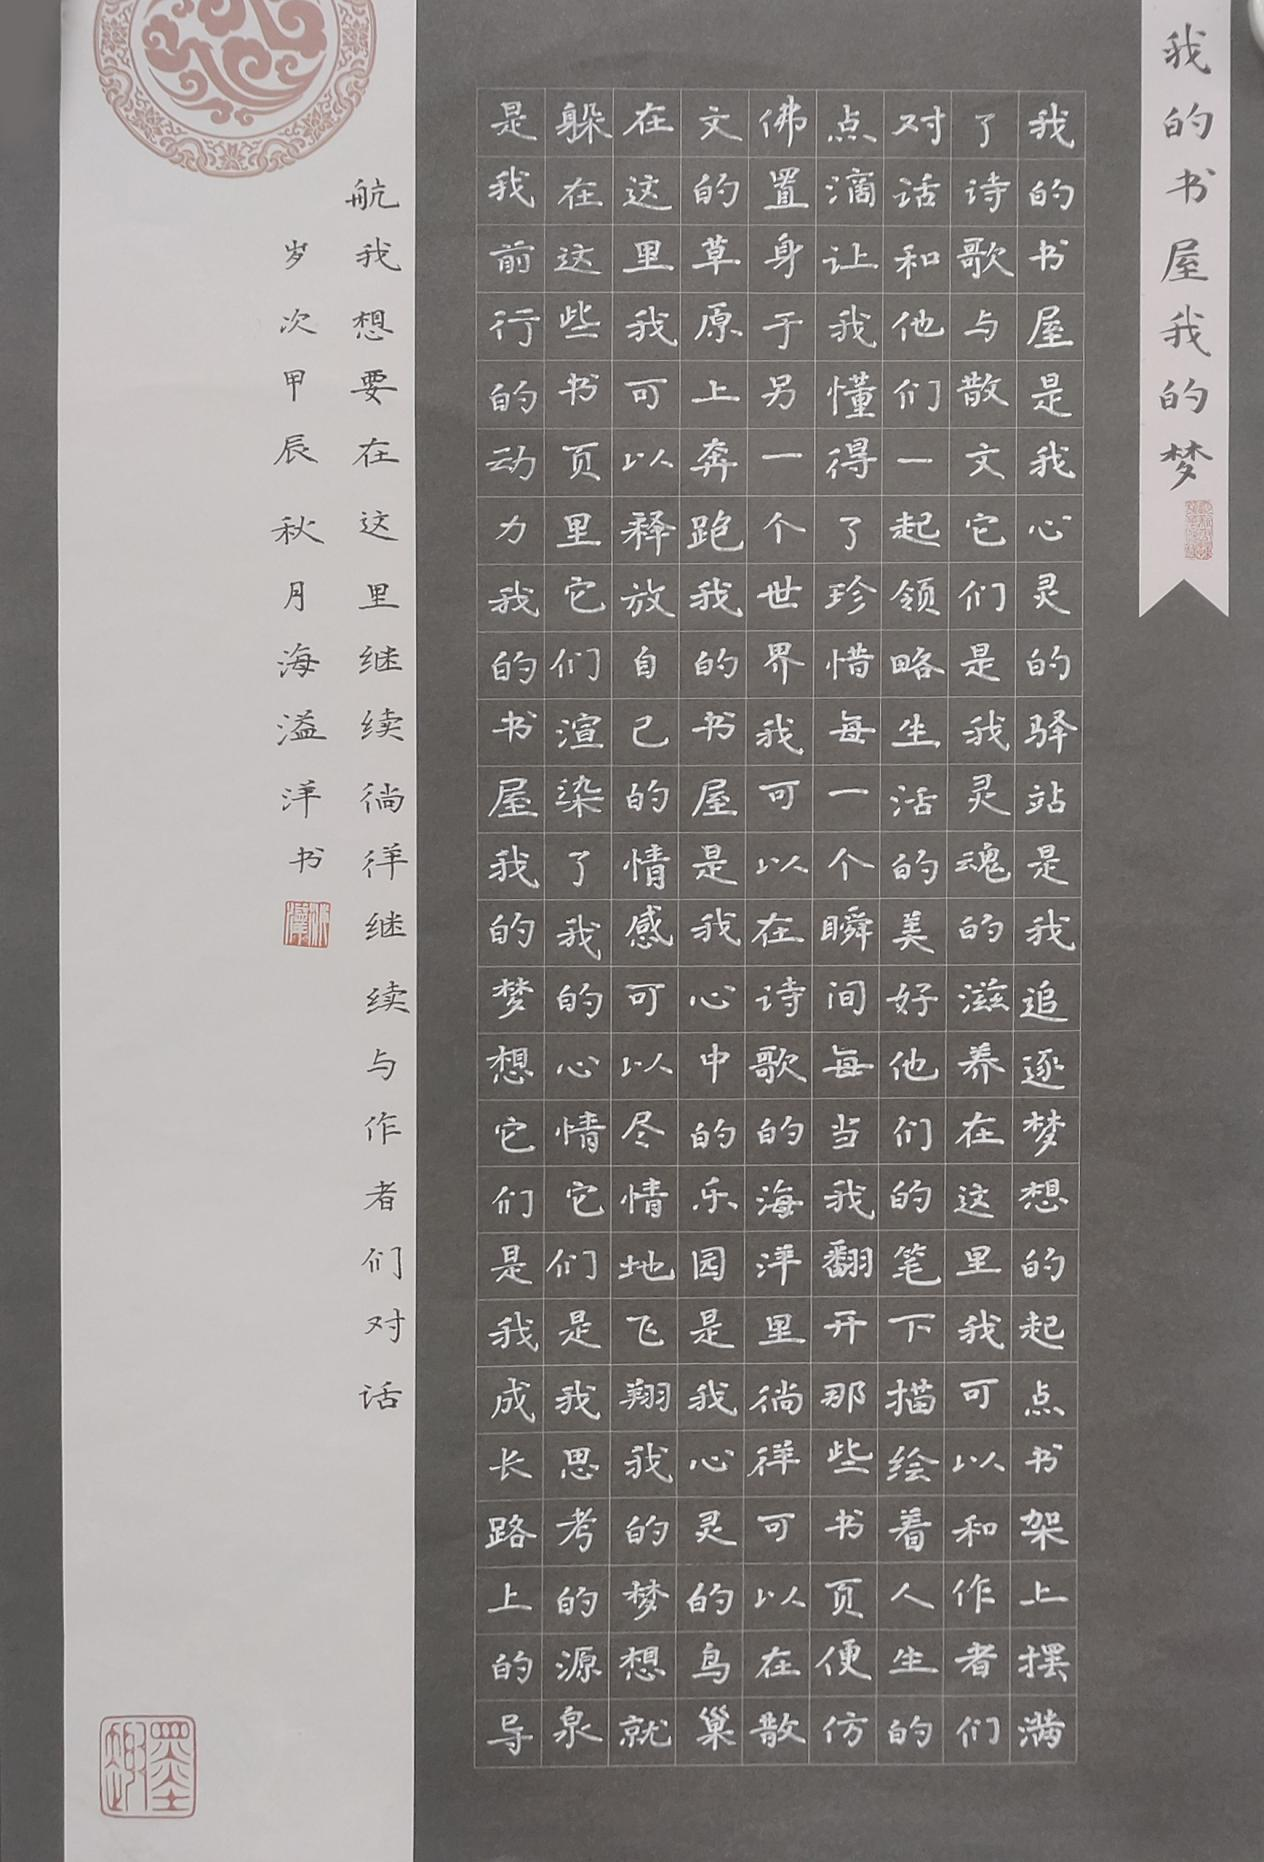 我的书屋我的梦
我的书屋是我心灵的驿站是我追逐梦想的起点书架上摆满
了诗歌与散文它们是我灵魂的滋养在这里我可以和作者们
对话和他们一起领略生活的美好他们的笔下描绘着人生的
点滴让我懂得了珍惜每一个瞬间每当我翻开那些书页便仿
佛置身于另一个世界我可以在诗歌的海洋里徜徉可以在散
文的草原上奔跑我的书屋是我心中的乐园是我心灵的鸟巢
在这里我可以释放自己的情感可以尽情地飞翔我的梦想就
躲在这些书页里它们渲染了我的心情它们是我思考的源泉
是我前行的动力我的书屋我的梦想它们是我成长路上的导
航我想要在这里继续徜徉继续与作者们对话
岁次甲辰秋月海溢洋书
墨趣